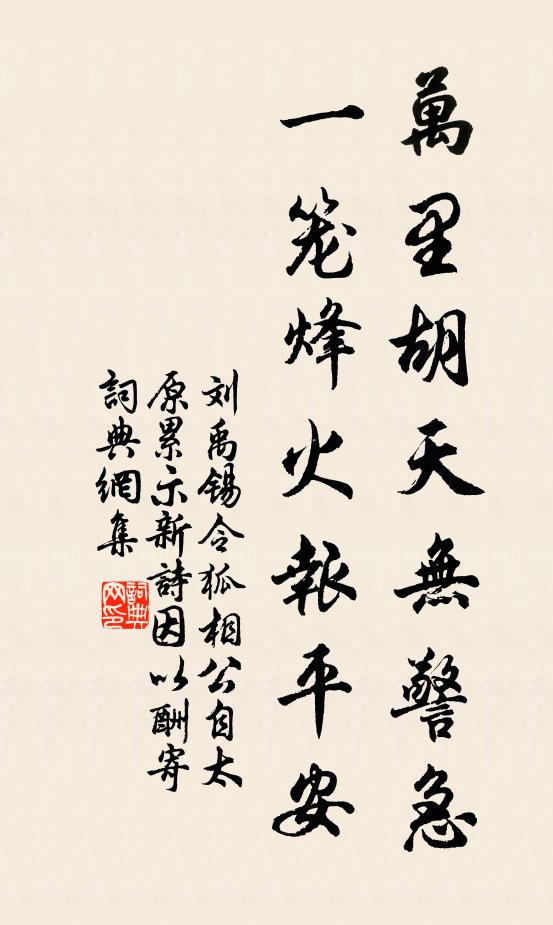 萬里胡天無警急
一笼烽火報平安
刘禹锡令狐相公自太
原累示新詩因以酬寄
詞典網集
詞典
网印